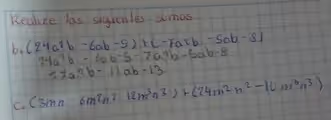 Realize las siguientes sumas
b. (24a²b - 6ab - 5) + (-7a²b - 5ab - 8)
24a²b - 6ab - 5 - 7a²b - 5ab - 8
17a²b - 11ab - 13
c. (3mn 6m²n² 12m³n³) + (24m²n² -